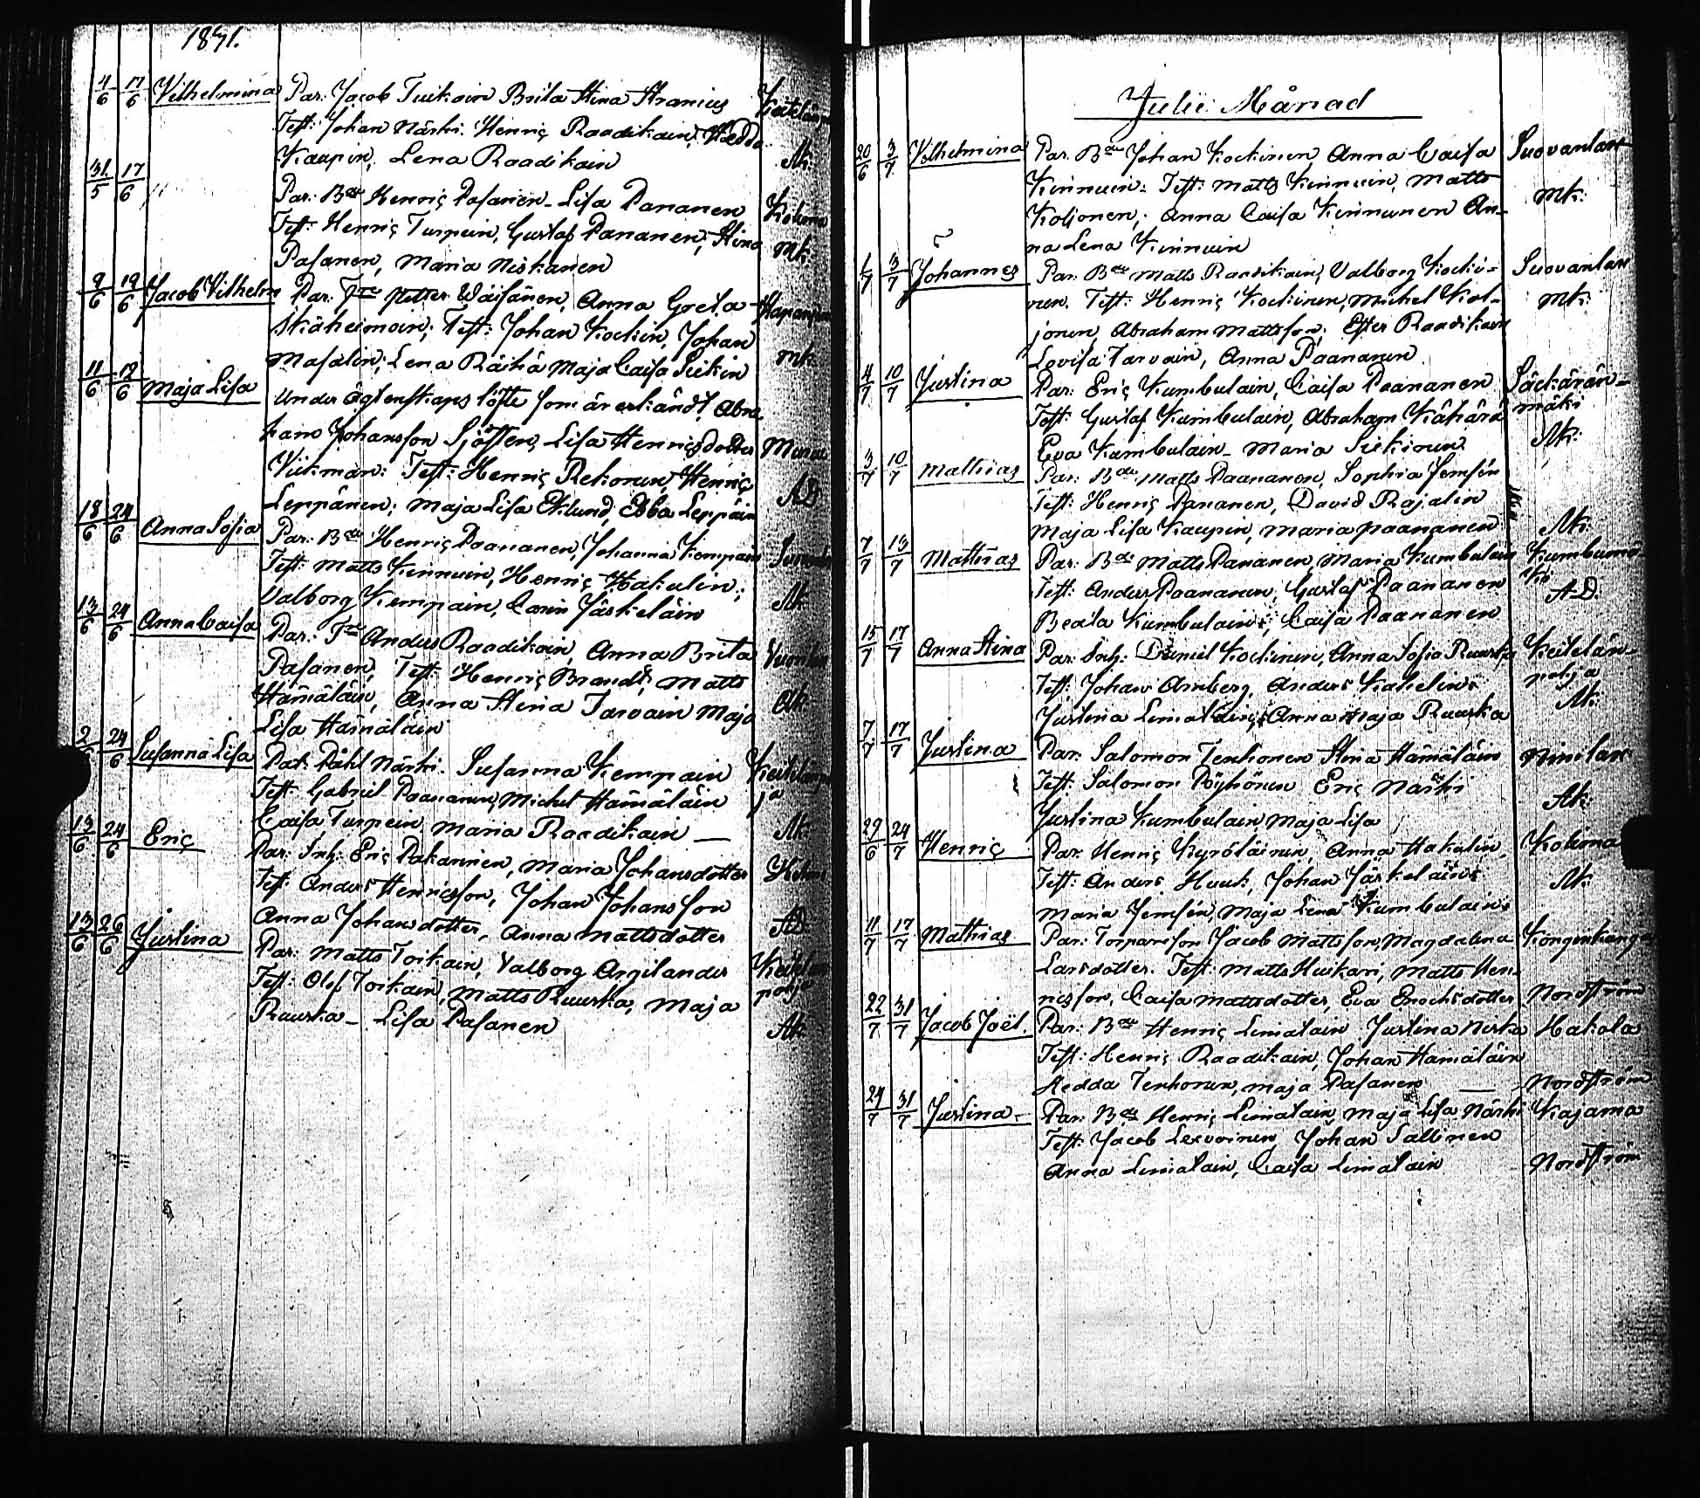 1841.
4/6 17/6 Vilhelmina Par: Jacob Tuikain Brita Stina Aranius
Test: Johan Närhi. Henric Raadikain, Hedda
Kaupin, Lena Raadikain Ak:
31/5 17/6 " Par: Bde Henric Pasanen - Lisa Pananen
Test: Henric Turpein, Gustaf Pananen, Stina Mk:
Pasanen, Maria Niskanen
9/6 19/6 Jacob Vilhelm Par: Petter Wäisänen, Anna Greta
Test: Johan Kockin, Johan
Masalin; Lena Räihä Maja Caisa Siekin Mk:
11/6 19/6 Maja Lisa Under ägtenskaps löfte som är erkändt, Abra
hams Johansson Lisa Henricsdotter
Vickman: Test: Henric Rekonen, Henric
Leppänen; Maja Lisa Eklund, Ebba Leppäin AD
18/6 24/6 Anna Sofia Par: Bde Henric Paananen, Johanna Kempain
Test: Matts Kinnuin, Henric Hakulin;
Valborg Kempain, Carin Jäskeläin Ak
13/6 24/6 Anna Caisa Par: Anders Raadikain, Anna Brita
Pasanen, Test: Henric Brandt, Matts
Hämäläin, Anna Stina Tarvain Maja Ak:
Lisa Hämäläin
24/6 Susanna Lisa Par: Påhl Närhi. Susanna Kempain
Test: Gabriel Paananen, Michel Hämäläin
Caisa Turpein, Maria Raadikain — Ak:
13/6 24/6 Eric Par: Inh: Eric Pakarinen, Maria Johansdotter
Test: Anders Henricsson, Johan Johansson
Anna Johansdotter, Anna Mattsdotter AD
13/6 26/6 Justina Par: Matts Toikain, Valborg Argilander
Test: Olof Toikain, Matts Ruuska, Maja
Ruuska - Lisa Pasanen Ak
Julii Månad
20/6 3/7 Vilhelmina Par. Bde Johan Kockinen Anna Caisa Suovanlax
Kinnuin: Test: Matts Kinnuin, Matts
Koljonen; Anna Caisa Kinnunen An- Mk:
na Lena Kinnuin
1/7 3/7 Johannes Par: Bde Matts Raadikain, Valborg Kocki- Suovanlax
nen. Test: Henric Kockinen, Michel Kol- Mk:
jonen, Abraham Mattsson: Ester Raadikain
Lovisa Tarvain, Anna Paananen
4/7 10/7 Justina Par: Eric Kumbulain, Caisa Paananen Säckärän-
Test: Gustaf Kumbulain, Abraham Kähärä mäki
Eva Kumbulain - Maria Siekinen Ak:
3/7 10/7 Mathias Par: Bde Matts Paananen, Sophia Jemsén
Test: Henric Pananen, David Rajalin
Maja Lisa Kaupin, Maria Paananen Ak:
7/7 13/7 Mathias Par: Bde Matts Pananen, Maria Kumbulain
Test: Anders Paananen, Gustaf Paananen AD.
Beata Kumbulain, Caisa Paananen
15/7 17/7 Anna Stina Par: Inh: Daniel Kockinen, Anna Sofia Ruuska Keitelän-
Test: Johan Arnberg, Anders Kahelin pohja
Justina Limatain, Anna Maja Ruuska Ak:
7/7 17/7 Justina Par: Salomon Tenhonen Stina Hämäläin Niinilax
Test: Salomon Pöyhönen Eric Närhi
Justina Kumbulain Maja Lisa Ak:
29/6 24/7 Henric Par: Henric Kyröläinen, Anna Hakulin, Kolima
Test: Anders Huuk, Johan Jäskeläin Ak
Maria Jemsén, Maja Lena Kumbulain
11/7 17/7 Mathias Par: Torparsson Jacob Mattsson, Magdalena Kongenkangas
Larsdotter. Test: Matts Huskari, Matts Hen-
ricsson, Caisa Mattsdotter, Eva Enochsdotter Nordström
22/7 31/7 Jacob Joël. Par: Bde Henric Limatain Justina Ruska Hakola
Test: Henric Raadikain, Johan Hämäläin
Hedda Tenhonen, Maja Pasanen — Nordström
24/7 31/7 Justina - Par: Bde Henric Limatain, Maja Lisa Närhi Kajama
Test: Jacob Lexvoinen, Johan Sallinen
Anna Limatain, Caisa Limatain Nordström